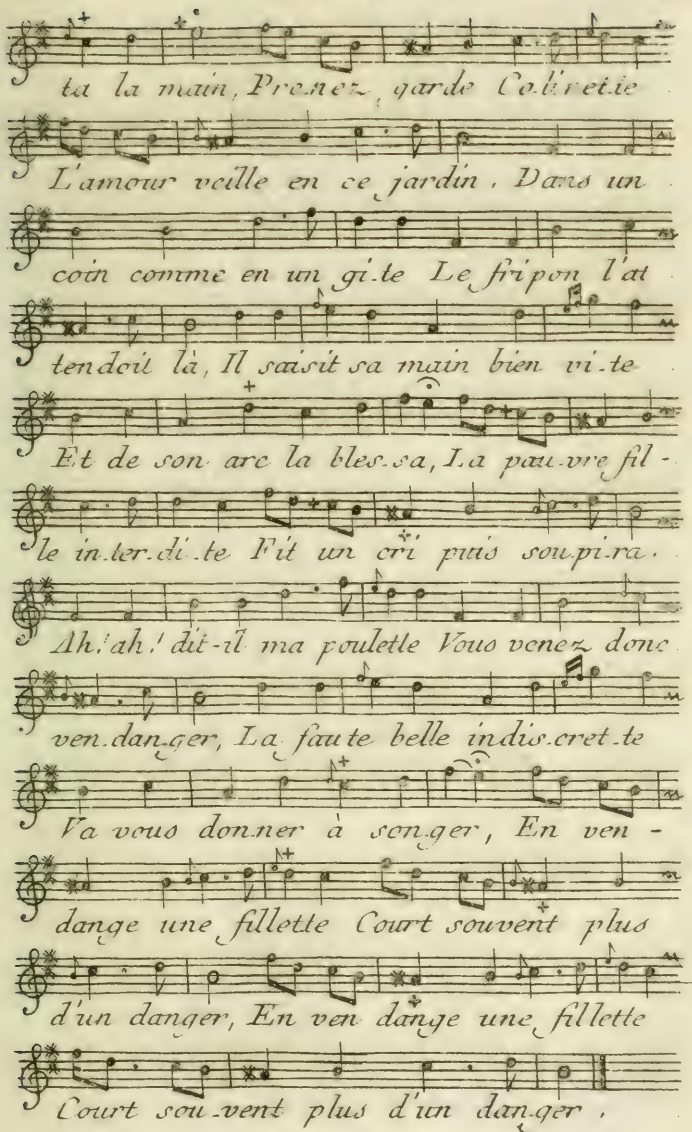 ta la main, Pre.nez garde Co.li.ret.te
L'amour veille en ce jardin. Dans un
coin comme en un gi.te Le fripon l'at
tendoit là, Il saisit sa main bien vi.te
Et de son arc la bles.sa, La pau.vre fil-
le in.ter.di.te Fit un cri puis sou.pi.ra.
Ah! ah! dit-il ma poulette Vous venez donc
ven.dan.ger, La faute belle indis.cret.te
Va vous don.ner à son.ger, En ven-
dange une fillette Court souvent plus
d'un danger, En ven dange une fillette
Court sou.vent plus d'un dan.ger.